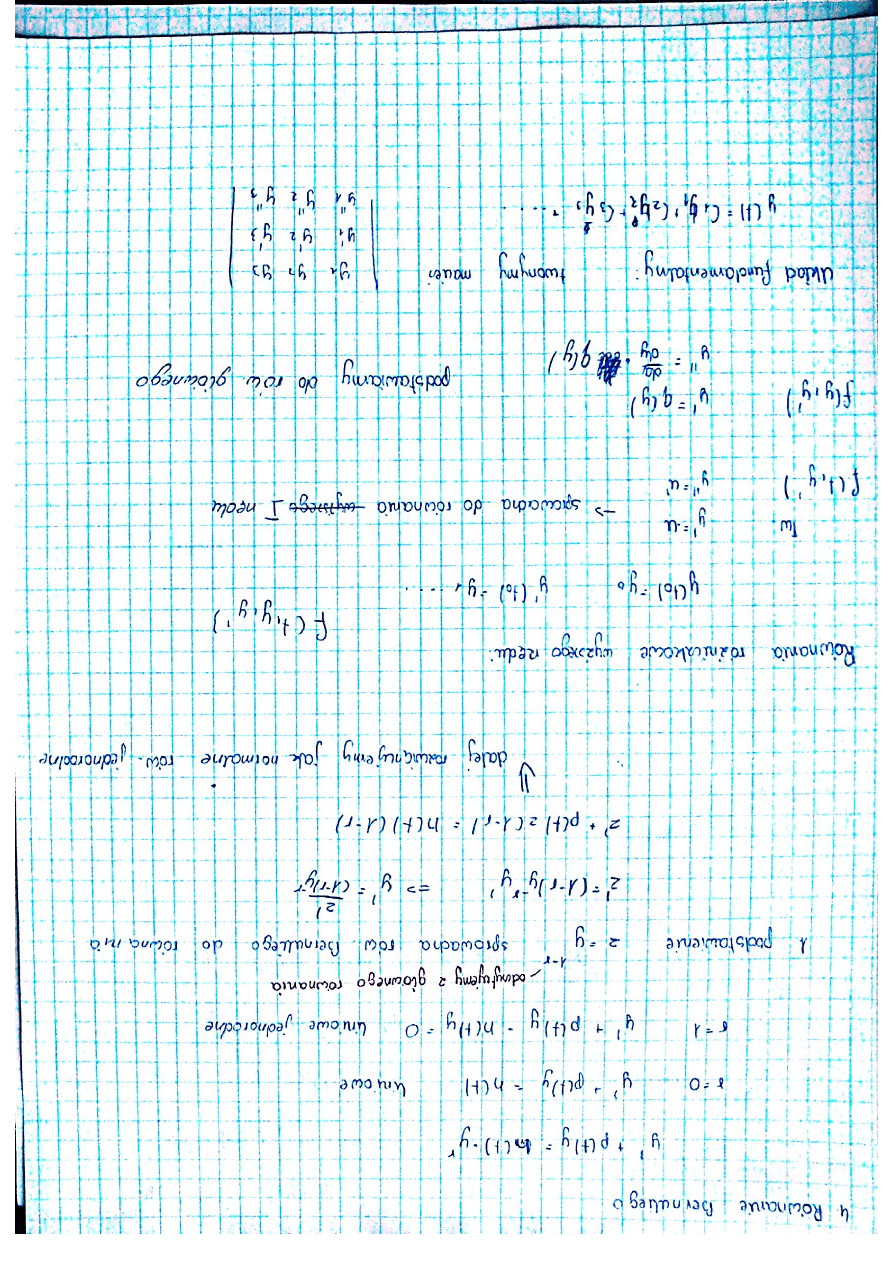 4 Równanie Bernulliego
y' + p(t)y = h(t)·y^r
r=0 y' + p(t)y = h(t) liniowe
r=1 y' + p(t)y - h(t)y = 0 liniowe jednorodne
odczytujemy z głównego równania
1 podstawienie z = y^{1-r} sprowadza rów Bernulliego do równania
z' = (1-r)y^{-r} y' => y' = \frac{z'}{(1-r)y^{-r}}
z' + p(t) z(1-r) = h(t)(1-r)
⇓
dalej rozwiązujemy jak normalne rów. jednorodne
Równania różniczkowe wyższego rzędu:
f(t,y,y')
y(t0) = y0 y'(t0) = y1 .....
Tw y' = u
-> sprowadza do równania wyższego I rzędu
f(t,y',) y'' = u'
f(y,y') y' = q(y)
y'' = \frac{dq}{dy} · q(y) podstawiamy do rów głównego
układ fundamentalny: tworzymy macierz
y1 y2 y3
y'1 y'2 y'3
y''1 y''2 y''3
y(t) = C1 y1 + C2 y2 + C3 y3 + .....